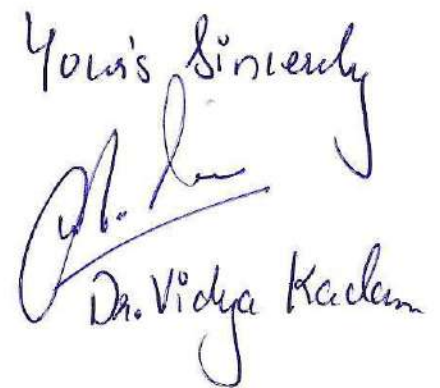 Yours Sincerely
Dr. Vidya Kadam